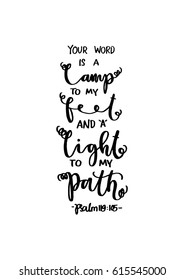 YOUR WORD
IS A
Lamp
TO MY
feet
AND A
light
TO MY
Path
-Psalm 119:105-
shutterstock.com · 615545000